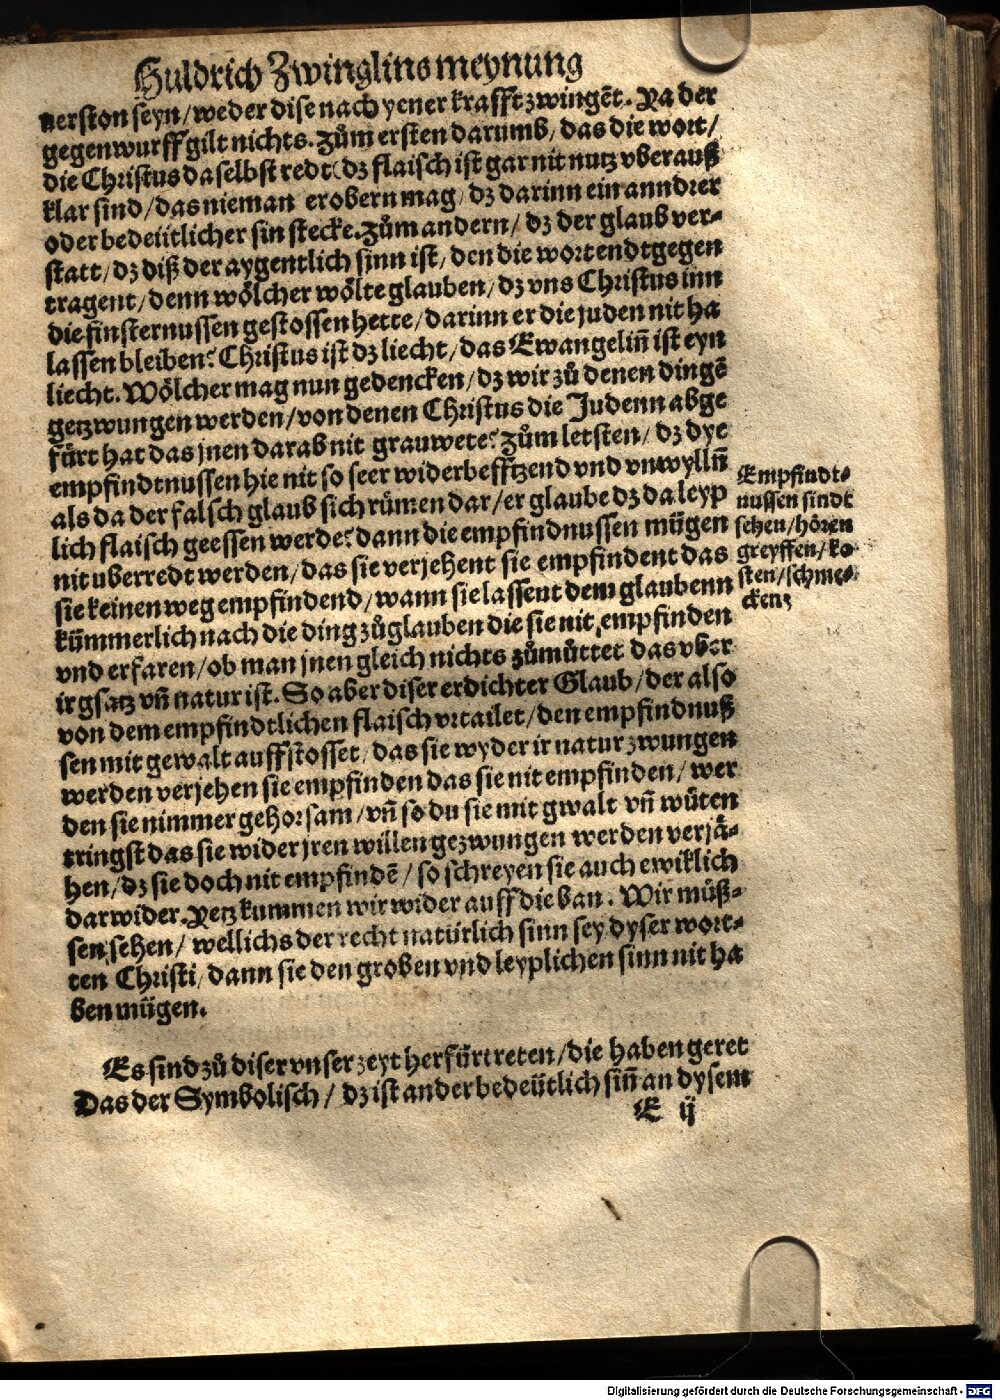 Huldrich Zwinglins meynung
nerston seyn/weder dise nach yener krafft zwingēt. Ya der
gegenwurff gilt nichts. Zům ersten darumb/das die wort/
die Christus daselbst redt (dz flaisch ist gar nit nutz vberauß
klar sind/das nieman erobern mag/dz darinn ein anndrer
oder bedeütlicher sin stecke. Zům andern/dz der glaub ver-
statt/dz diß der aygentlich sinn ist/den die wort endtgegen
tragent/denn wölcher wölte glauben/dz vns Christus inn
die finsternussen gestossen hette/darinn er die juden nit ha
lassen bleiben? Christus ist dz liecht/das Ewangeliū ist eyn
liecht. Wölcher mag nun gedencken/dz wir zů denen dingē
getzwungen werden/von denen Christus die Judenn abge
fürt hat das jnen darab nit grauwete? Zům letsten/dz dye
empfindtnussen hie nit so seer widerbefftzend vnd vnwyllñ
als da der falsch glaub sich rümen dar/er glaube dz da leyp
lich flaisch geessen werde? dann die empfindnussen mügen
nit uberredt werden/das sie verjehent sie empfindent das
sie keinen weg empfindend/wann sie lassent dem glaubenn
kümmerlich nach die ding zůglauben die sie nit empfinden
vnd erfaren/ob man jnen gleich nichts zůmůttet das vber
ir gsatz vñ natur ist. So aber diser erdichter Glaub/der also
von dem empfindtlichen flaisch vrtailet/den empfindnuß
sen mit gewalt auffstosset/das sie wyder ir natur zwungen
werden verjehen sie empfinden das sie nit empfinden/wer
den sie nimmer gehorsam/vñ so du sie mit gwalt vñ wüten
tringst das sie wider jren willen gezwungen werden verjä-
hen/dz sie doch nit empfindē/so schreyen sie auch ewiklich
darwider. Yetz kummen wir wider auff die ban. Wir müß-
sen sehen/wellichs der recht natürlich sinn sey dyser wort-
ten Christi/dann sie den groben vnd leyplichen sinn nit ha
ben mügen.
Empfindt-
nussen sindt
sehen/hören
greyffen/ko
sten/schme-
cken
Es sind zů diser vnser zeyt herfürtreten/die haben geret
Das der Symbolisch/dz ist ander bedeütlich siñ an dysem
E ij
Digitalisierung gefördert durch die Deutsche Forschungsgemeinschaft - DFG